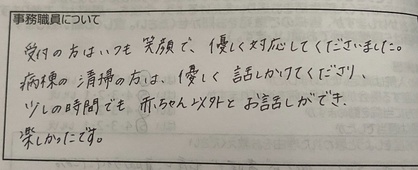 事務職員について
受付の方はいつも笑顔で、優しく対応してくださいました。
病棟の清掃の方は、優しく話しかけてくださり、
少しの時間でも、赤ちゃん以外とお話しができ、
楽しかったです。